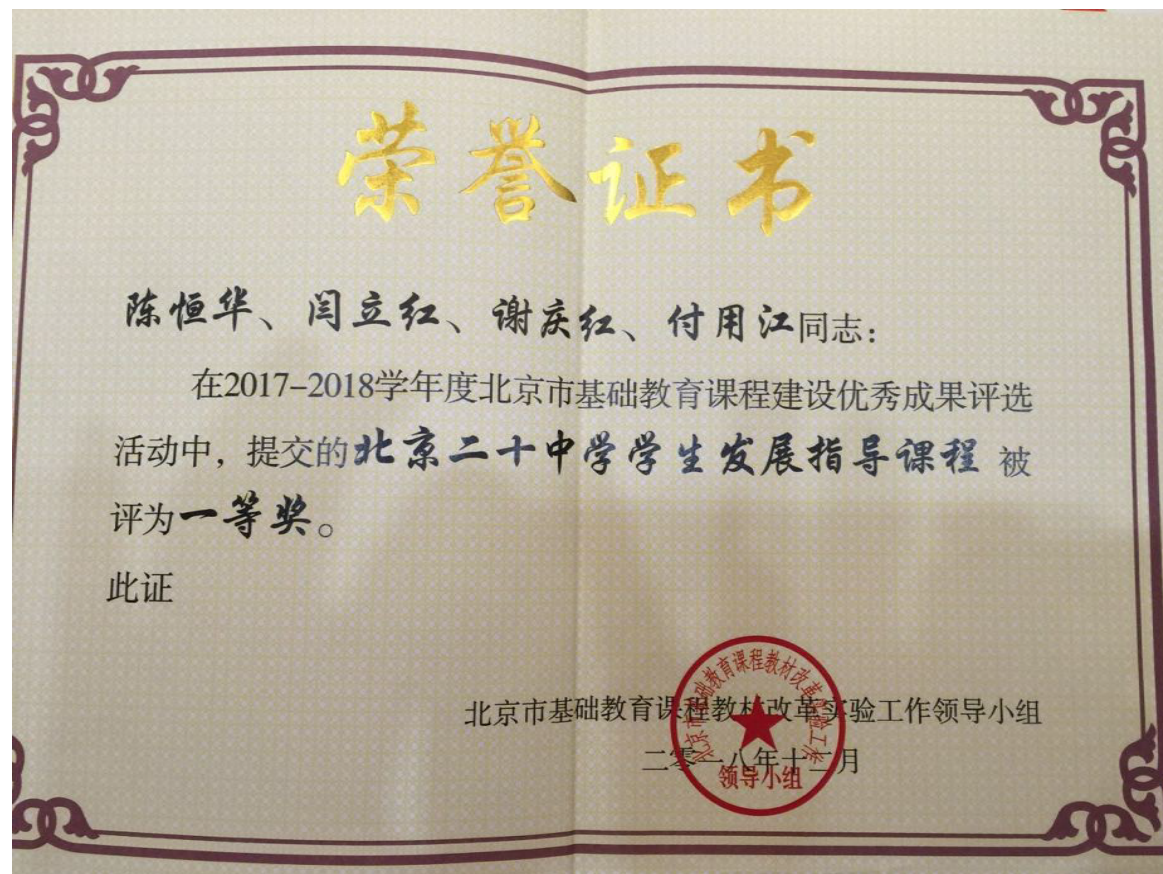 荣誉证书
陈恒华、闫立红、谢庆红、付用江同志：
在2017-2018学年度北京市基础教育课程建设优秀成果评选
活动中，提交的北京二十中学学生发展指导课程 被
评为一等奖。
此证
北京市基础教育课程教材改革实验工作领导小组
二零一八年十二月
北京市基础教育课程教材改革实验工作
领导小组